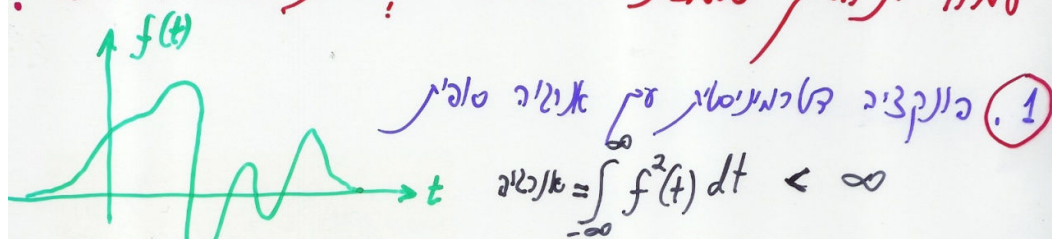 f(t)
1. פונקציה דטרמיניסטית עם אנרגיה סופית
אנרגיה = ∫_{-∞}^{∞} f²(t) dt < ∞
t